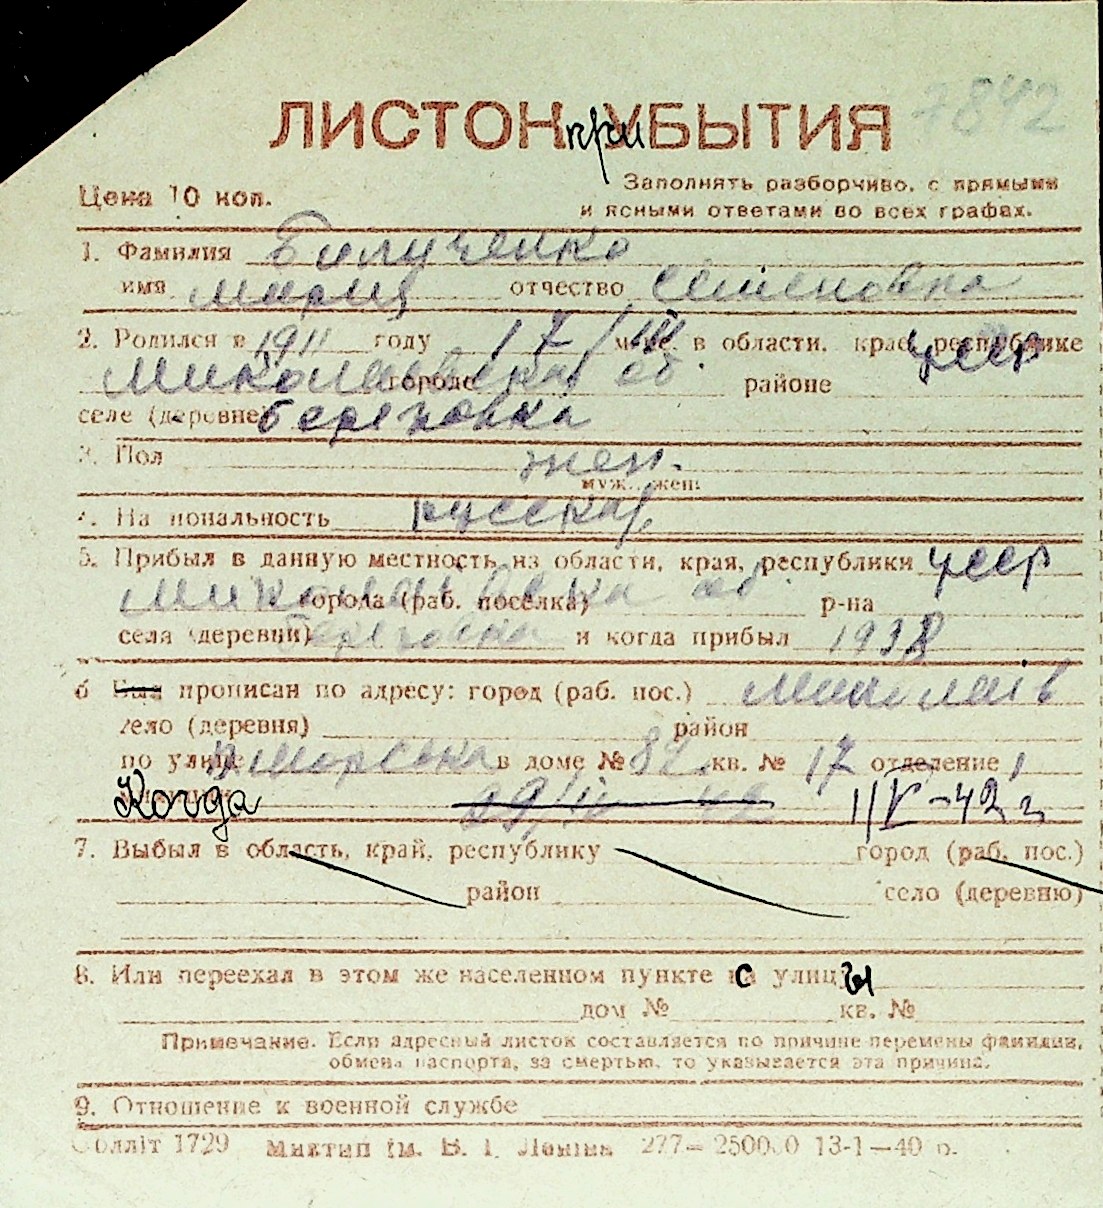 7842
ЛИСТОК приУБЫТИЯ
Цена 10 коп.
Заполнять разборчиво, с прямыми
и ясными ответами во всех графах.
1. Фамилия
имя Мария отчество Семеновна
2. Родился в 1911 году 17/III м-це в области, крае, республике УССР
Миколаевская об. городе районе
селе (деревне) березовка
3. Пол жен.
муж., жен.
4. Национальность русская
5. Прибыл в данную местность из области, края, республики УССР
Миколаевска об города (раб. поселка) р-на
села (деревни) березовка и когда прибыл 1932
6 Был прописан по адресу: город (раб. пос.) Миколаів
село (деревня) район
по улице Морська в доме № 82 кв. № 17 отделение 1
Когда 29/IV 42 1/V-42 г
7. Выбыл в область, край, республику город (раб. пос.)
район село (деревню)
8. Или переехал в этом же населенном пункте с улицы
дом № кв. №
Примечание. Если адресный листок составляется по причине перемены фамилии,
обмена паспорта, за смертью, то указывается эта причина.
9. Отношение к военной службе
Обліт 1729 Миктип ім. В. І. Леніна 277—250000 13-1—40 р.